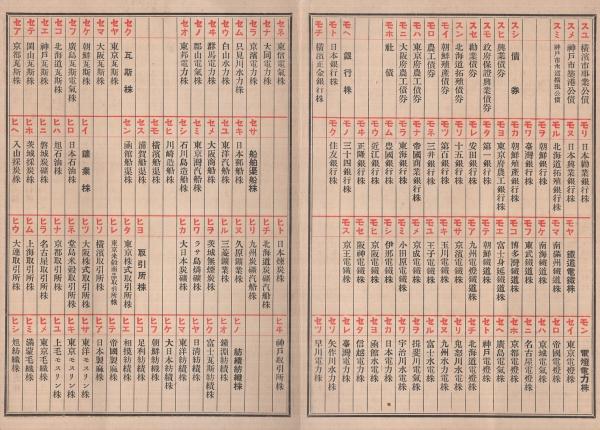 スユ 横濱市事業公債
スメ 神戸市築港公債
スミ 神戸市水道擴張公債
スシ 債券
スヒ 興業債券
スモ 政府保證興業債券
スセ 勸業債券
スン 北海道拓殖債券
モイ 朝鮮殖産債券
モロ 農工債券
モハ 東京府農工債券
モニ 大阪農工債券
モホ 社債
モヘ 銀行株
モト 日本銀行株
モチ 横濱正金銀行株
モリ 日本勸業銀行株
モヌ 日本興業銀行株
モル 北海道拓殖銀行株
モヲ 朝鮮銀行株
モワ 臺灣銀行株
モカ 朝鮮殖産銀行株
モヨ 東京府農工銀行株
モタ 第一銀行株
モレ 安田銀行株
モソ 十五銀行株
モツ 第百銀行株
モネ 三井銀行株
モナ 帝國商業銀行株
モラ 東海銀行株
モム 豊國銀行株
モウ 近江銀行株
モヰ 正隆銀行株
モノ 三十四銀行株
モク 住友銀行株
モヤ 鐵道電鐵株
モマ 南滿州鐵道株
モケ 南海鐵道株
モフ 東武鐵道株
モコ 博多灣鐵道株
モエ 富士身延鐵道株
モテ 朝鮮鐵道株
モア 九州電燈鐵道株
モサ 京濱電鐵株
モキ 玉川電鐵株
モユ 王子電鐵株
モメ 京成電鐵株
モミ 小田原電鐵株
モシ 伊那電鐵株
モヒ 京阪電鐵株
モセ 阪神電鐵株
モス 京王電鐵株
モン 電燈電力株
セイ 東京電燈株
セロ 帝國電燈株
セハ 京城電氣株
セニ 名古屋電燈株
セホ 京都電燈株
セヘ 廣島電氣株
セト 神戸電燈株
セチ
セリ 鬼怒川水電株
セヌ 九州水力電株
セル 富士水電株
セヲ 揖斐川電氣株
セワ 宇治川水電株
セカ 日本電力株
セヨ 函館水電株
セタ 信越電力株
セレ 臺灣電力株
セソ 矢作川水電株
セツ 早川電力株
セネ 東信電氣株
セナ 大同電力株
セラ 京濱電力株
セム 只見川水力株
セウ 白山水力株
セヰ 群馬電力株
セノ 郡山電氣株
セオ 東邦電力株
セク 瓦斯株
セヤ 東京瓦斯株
セマ 大阪瓦斯株
セケ 朝鮮瓦斯株
セフ 廣島瓦斯電氣株
セコ 北海道瓦斯株
セエ 神戸瓦斯株
セテ 岡山瓦斯株
セア 京都瓦斯株
セサ 船舶船渠株
セキ 日本郵船株
セユ 東洋汽船株
セメ 大阪商船株
セミ 東京灣汽船株
セシ 石川島造船株
セヒ 川崎造船株
セモ 横濱船渠株
セス 浦賀船渠株
セン 函館船渠株
ヒイ 鑛業株
ヒロ 日本石油株
ヒハ 旭石油株
ヒニ 磐城炭礦株
ヒホ 茨城採炭株
ヒヘ 入山採炭株
ヒト 日本煉炭株
ヒチ 北海道炭礦汽船株
ヒリ 九州炭礦汽船株
ヒヌ 久原鑛業株
ヒル 三菱鑛業株
ヒヲ 茨城無煙炭株
ヒワ ラサ島燐礦株
ヒカ 大日本炭礦株
ヒヨ 取引所株
ヒタ 東京株式取引所株
ヒレ 東京米穀商品取引所株
ヒソ 横濱取引所株
ヒツ 大阪株式取引所株
ヒネ 堂島米穀取引所株
ヒナ 京都取引所株
ヒラ 名古屋取引所株
ヒム 上海取引所株
ヒウ 大連取引所株
ヒヰ 神戸取引所株
ヒノ 紡績紡織株
ヒオ 鐘淵紡績株
ヒク 富士瓦斯紡績株
ヒヤ 日清紡績株
ヒマ 東洋紡績株
ヒケ 大日本紡績株
ヒフ 朝鮮紡織株
ヒコ 足利紡績株
ヒエ 相模紡績株
ヒテ 帝國製麻株
ヒア 日本製麻株
ヒサ 東洋モスリン株
ヒキ 東京モスリン株
ヒユ 上毛モスリン株
ヒメ 東京毛織株
ヒミ 滿蒙毛織株
ヒシ 旭紡織株